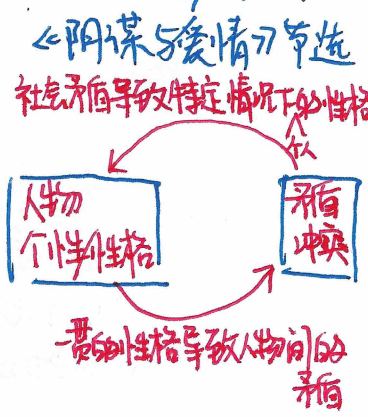 《阴谋与爱情》节选
社会矛盾导致特定情况下的性格
个人
人物
个性性格
矛盾
冲突
一贯的性格导致人物间的
矛盾